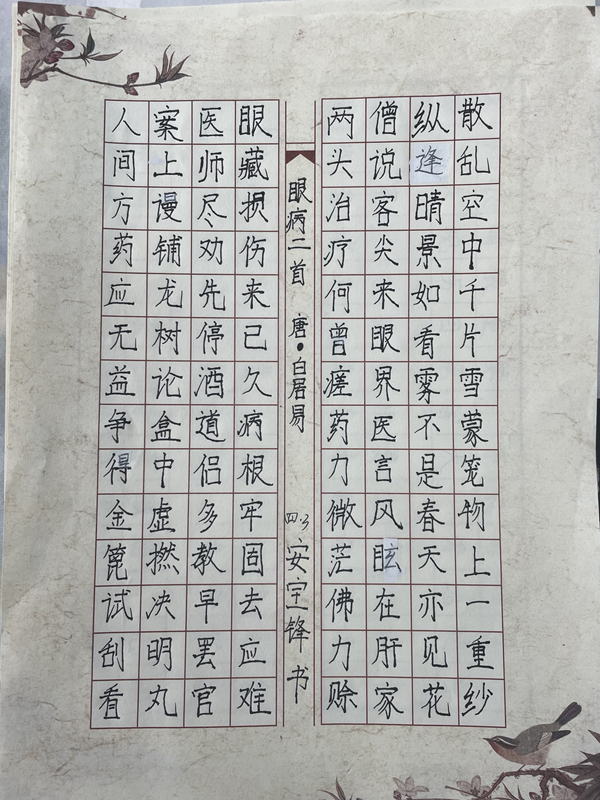 散乱空中千片雪蒙笼物上一重纱
纵逢晴景如看雾不是春天亦见花
僧说客尖来眼界医言风眩在肝家
两头治疗何曾瘥药力微茫佛力赊
眼病二首 唐•白居易 四.3 安宝锋书
眼藏损伤来己久病根牢固去应难
医师尽劝先停酒道侣多教早罢官
案上谩铺龙树论盒中虚撚决明丸
人间方药应无益争得金篦试刮看